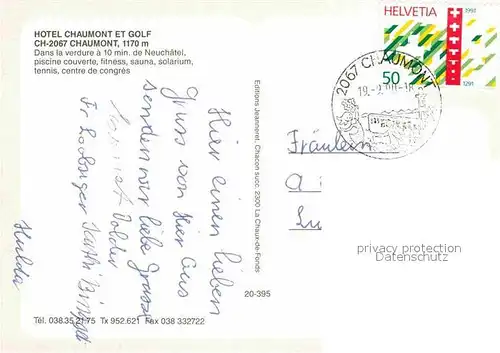 HOTEL CHAUMONT ET GOLF
CH-2067 CHAUMONT, 1170 m
Dans la verdure à 10 min. de Neuchâtel,
piscine couverte, fitness, sauna, solarium,
tennis, centre de congrès
HELVETIA
1991
50
1291
2067 CHAUMONT
Editions Jeanneret, Chacon succ. 2300 La Chaux-de-Fonds
Hier einen lieben
Gruss von hier aus
senden wir liebe Grüsse
Hulda
Fräulein
privacy protection
Datenschutz
20-395
Tél. 038.35 21 75 Tx 952.621 Fax 038 332722